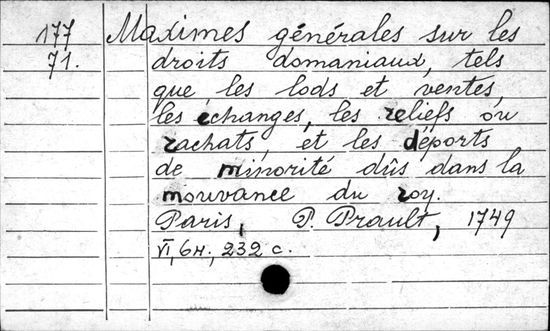 177 Maximes générales sur les
71. droits domaniaux, tels
que les lods et ventes,
les échanges, les reliefs ou
rachats, et les déports
de minorité dûs dans la
mouvance du roy.
Paris, P. Prault, 1749
VI, 6н., 232 c.